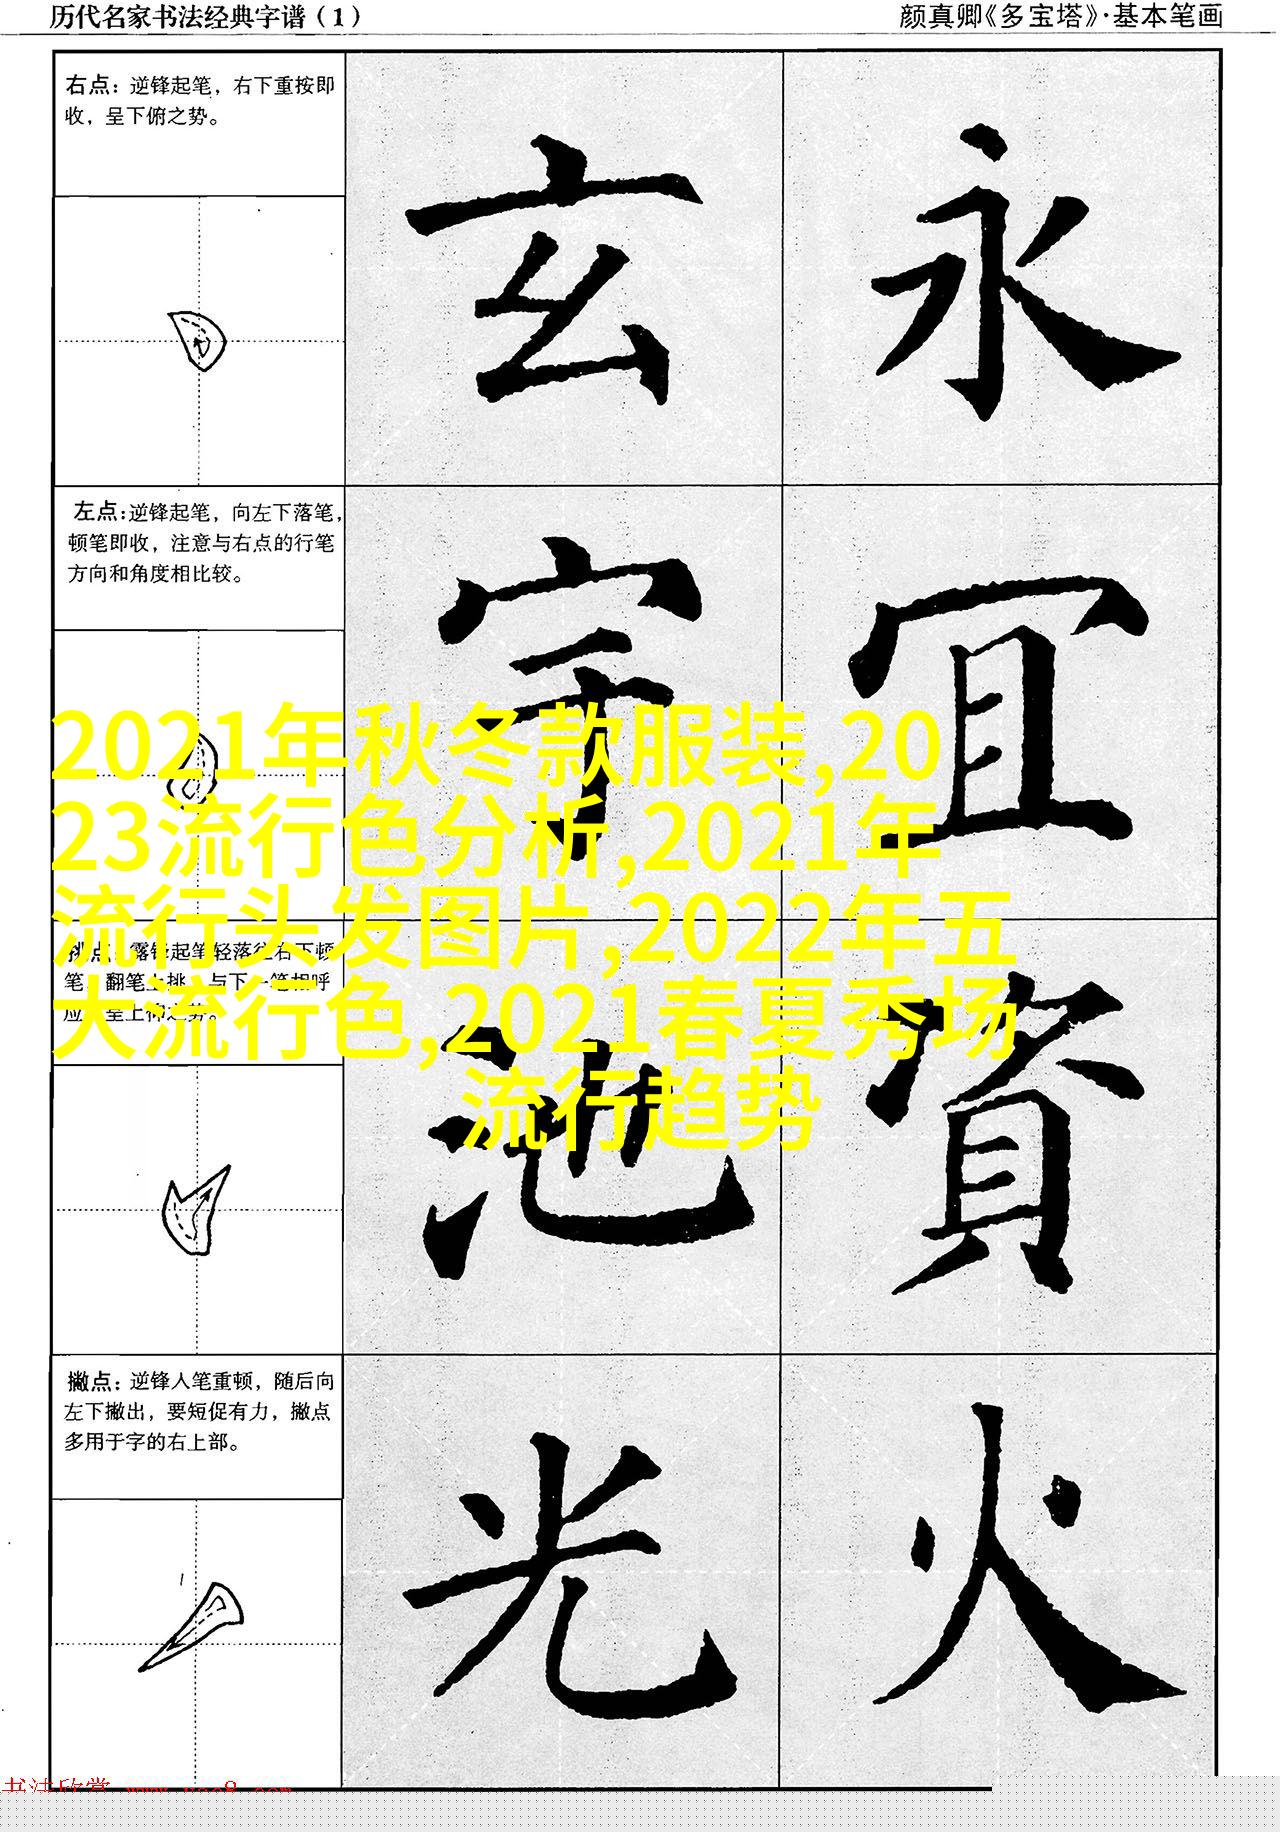 历代名家书法经典字谱（1）
颜真卿《多宝塔》·基本笔画
右点：逆锋起笔，右下重按即
收，呈下俯之势。
玄
永
左点：逆锋起笔，向左下落笔，
顿笔即收，注意与右点的行笔
方向和角度相比较。
宇
宜
2021年秋冬款服装,20
23流行色分析,2021年
流行头发图片,2022年五
大流行色,2021春夏秀场
流行趋势
挑点：露锋起笔轻落往右下顿
笔，翻笔上挑，与下一笔相呼
应，呈上仰之势。
池
資
撇点：逆锋人笔重顿，随后向
左下撇出，要短促有力，撇点
多用于字的右上部。
光
火
书法欣赏